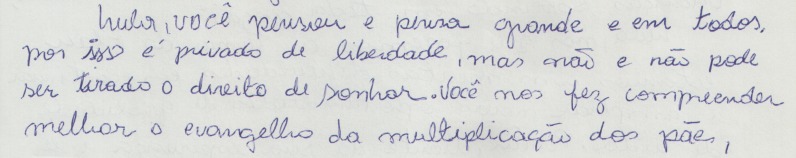 Lula, você pensou e pensa grande e em todos,
por isso é privado de liberdade, mas não e não pode
ser tirado o direito de sonhar. Você nos fez compreender
melhor o evangelho da multiplicação dos pães,